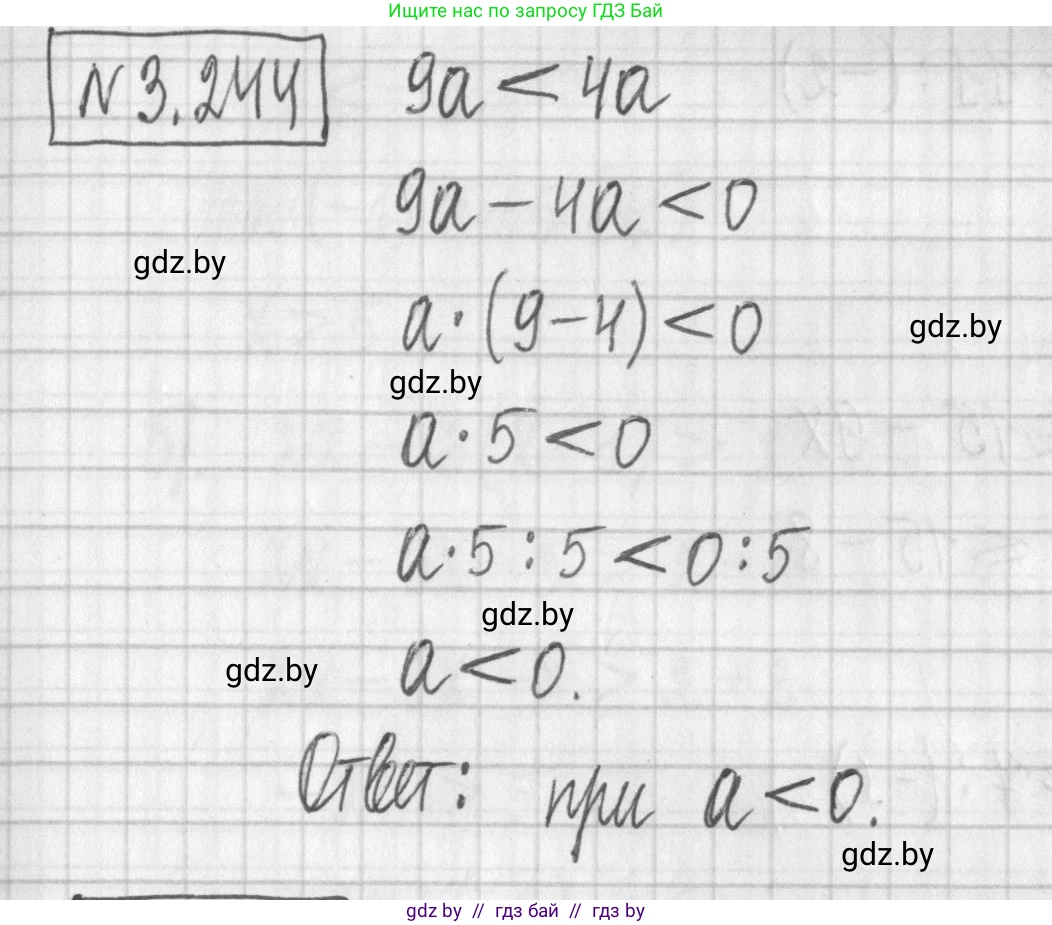 Ищите нас по запросу ГДЗ Бай
N 3.244
9a < 4a
9a − 4a < 0
gdz.by
a · (9 − 4) < 0
gdz.by
gdz.by
a · 5 < 0
a · 5 : 5 < 0 : 5
gdz.by
a < 0.
gdz.by
Ответ: при a < 0.
gdz.by
gdz by // гдз бай // гдз by